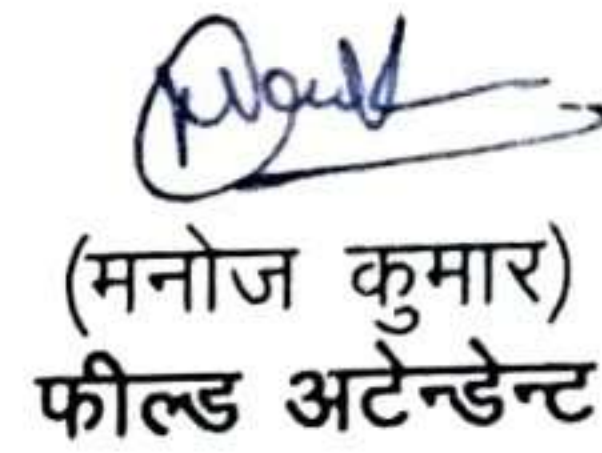 (मनोज कुमार)
फील्ड अटेन्डेन्ट